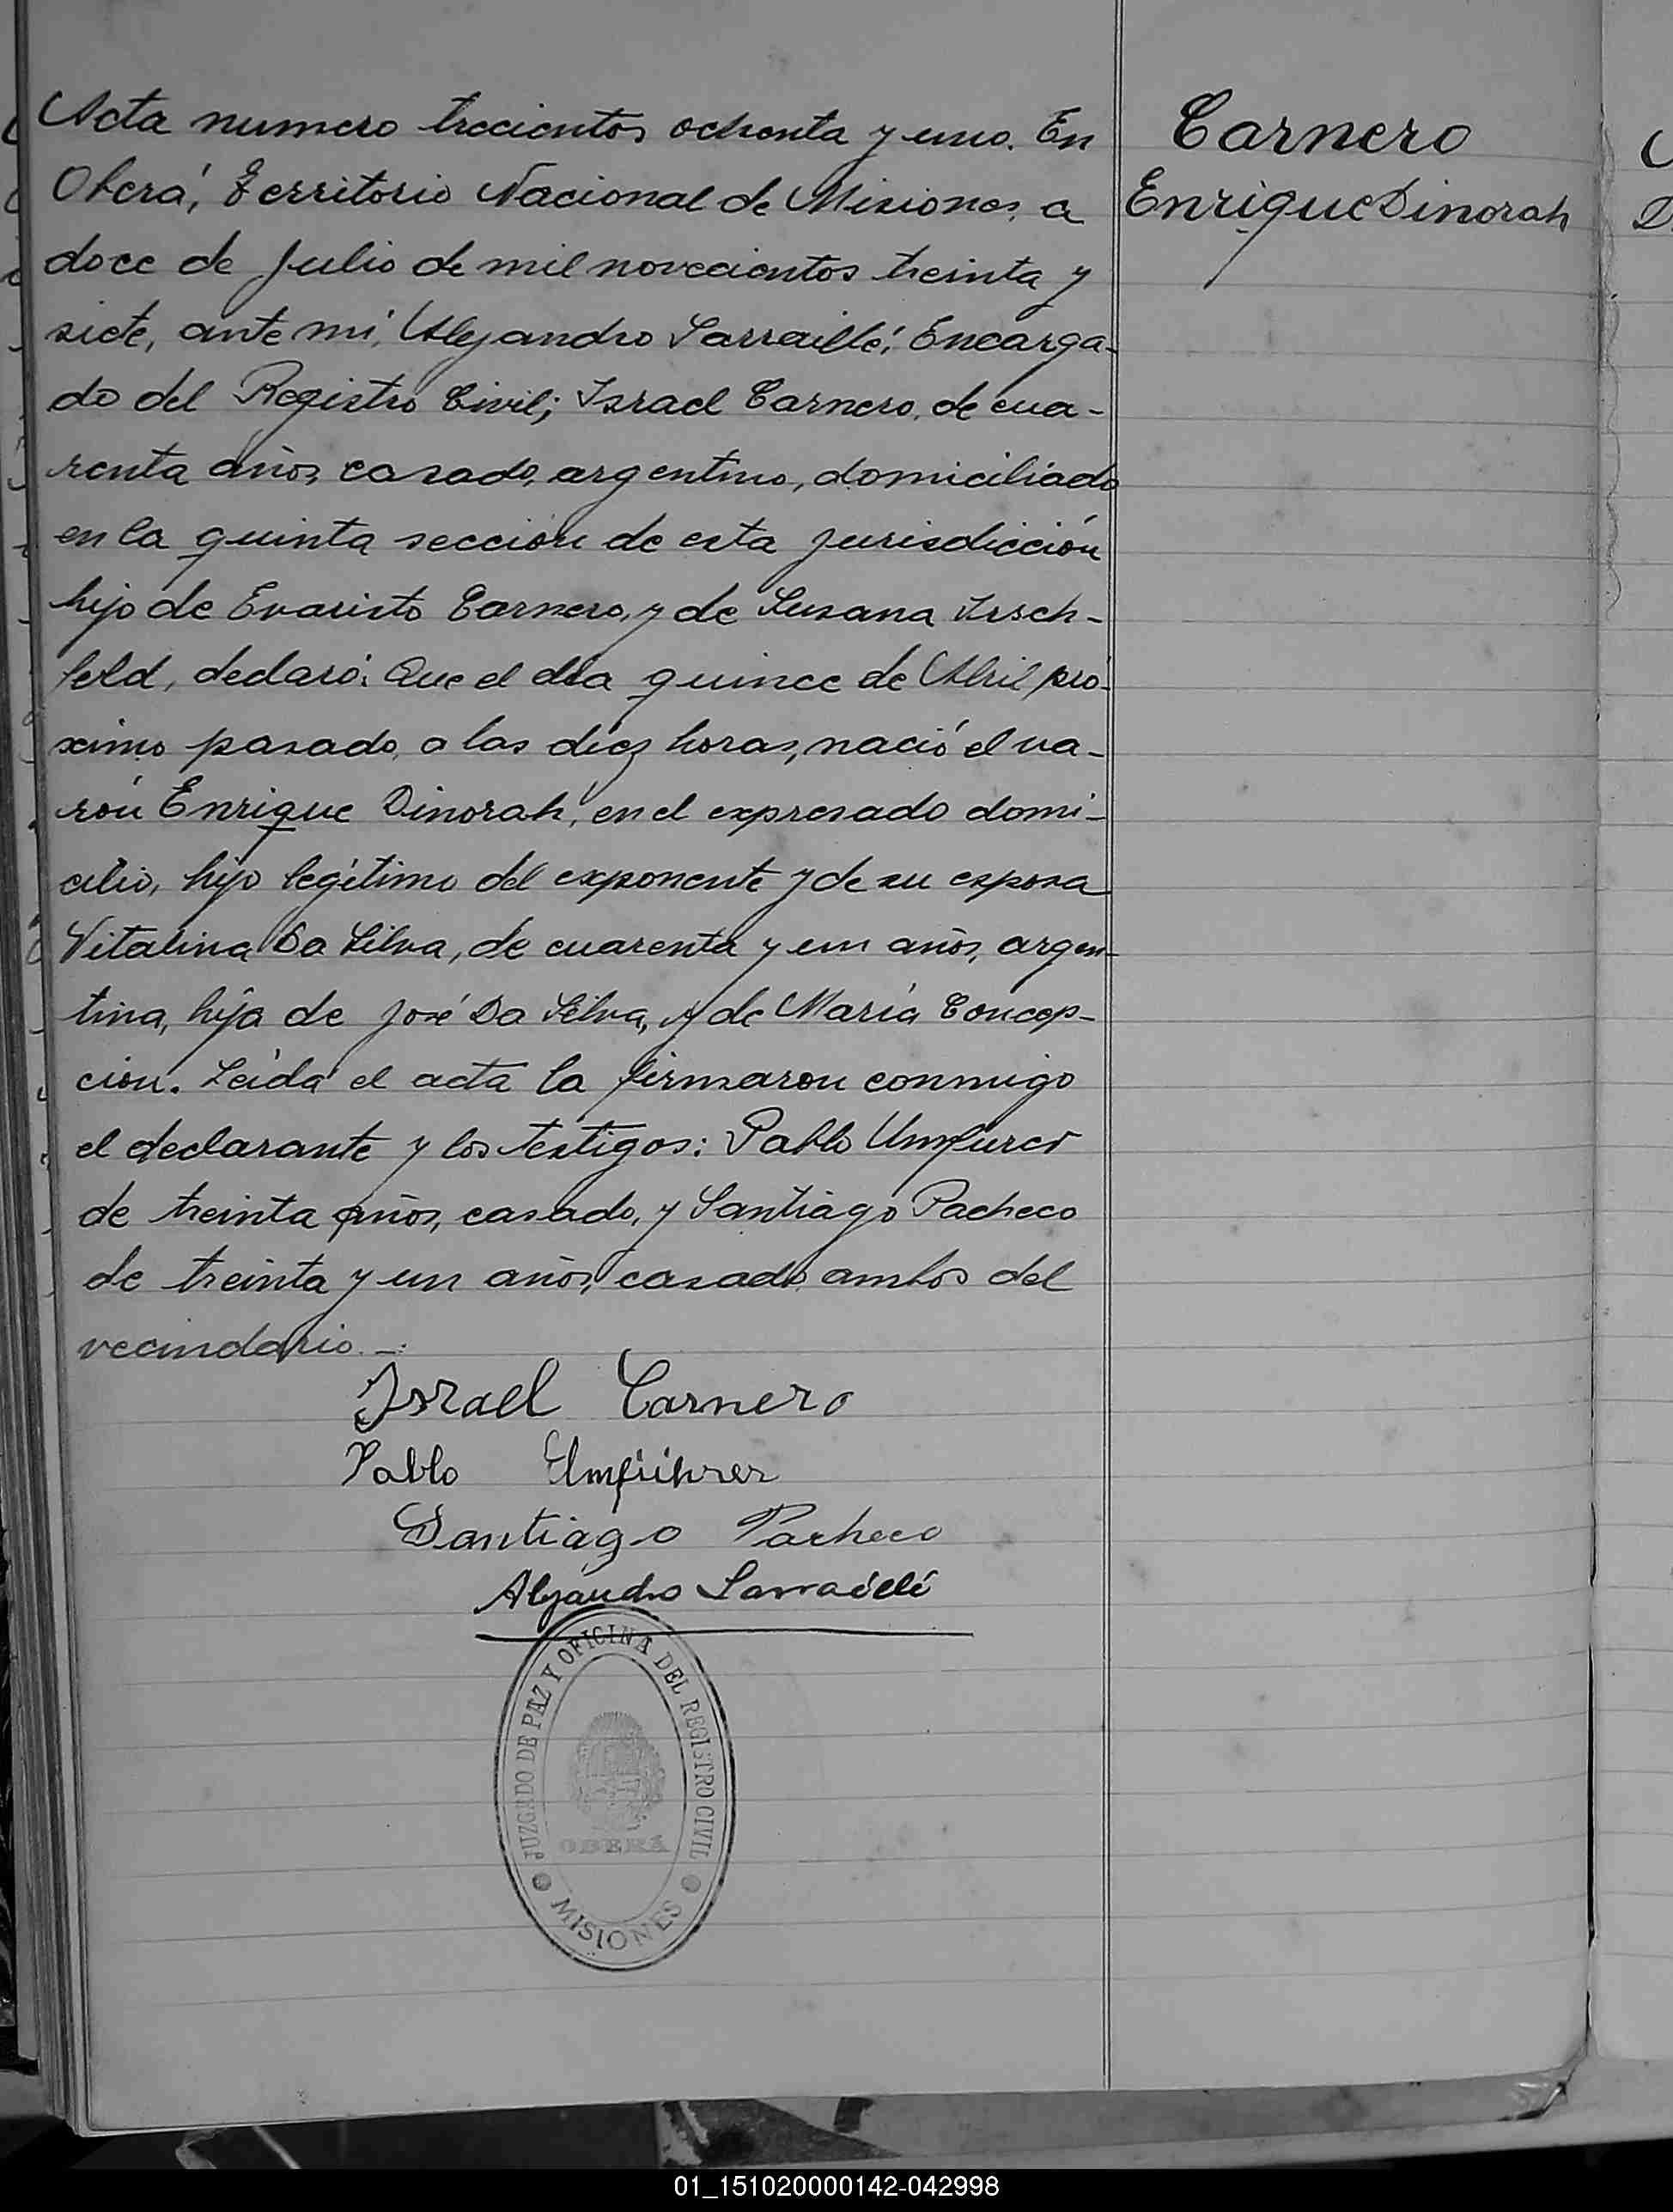 Acta numero trecientos ochenta y uno. En
Oberá, Territorio Nacional de Misiones, a
doce de Julio de mil novecientos treinta y
siete, ante mí, Alejandro Sarraillé, Encarga-
do del Registro Civil; Israel Carnero, de cua-
renta años, casado, argentino, domiciliado
en la quinta sección de esta jurisdicción
hijo de Evaristo Carnero, y de Susana Irsch-
feld, declaró: Que el día quince de Abril pró-
ximo pasado, a las diez horas, nació el va-
rón Enrique Dinorah, en el expresado domi-
cilio, hijo legítimo del exponente y de su esposa
Vitalina Da Silva, de cuarenta y un años, argen-
tina, hija de José Da Silva, y de María Concep-
cion. Leída el acta la firmaron conmigo
el declarante y los testigos: Pablo Umfurer
de treinta años, casado, y Santiago Pacheco
de treinta y un años, casado, ambos del
vecindario.-
Carnero
Enrique Dinorah
Israel Carnero
Pablo Umführer
Santiago Pacheco
Alejandro Sarraillé
JUZGADO DE PAZ Y OFICINA DEL REGISTRO CIVIL
OBERÁ
MISIONES
01_151020000142-042998